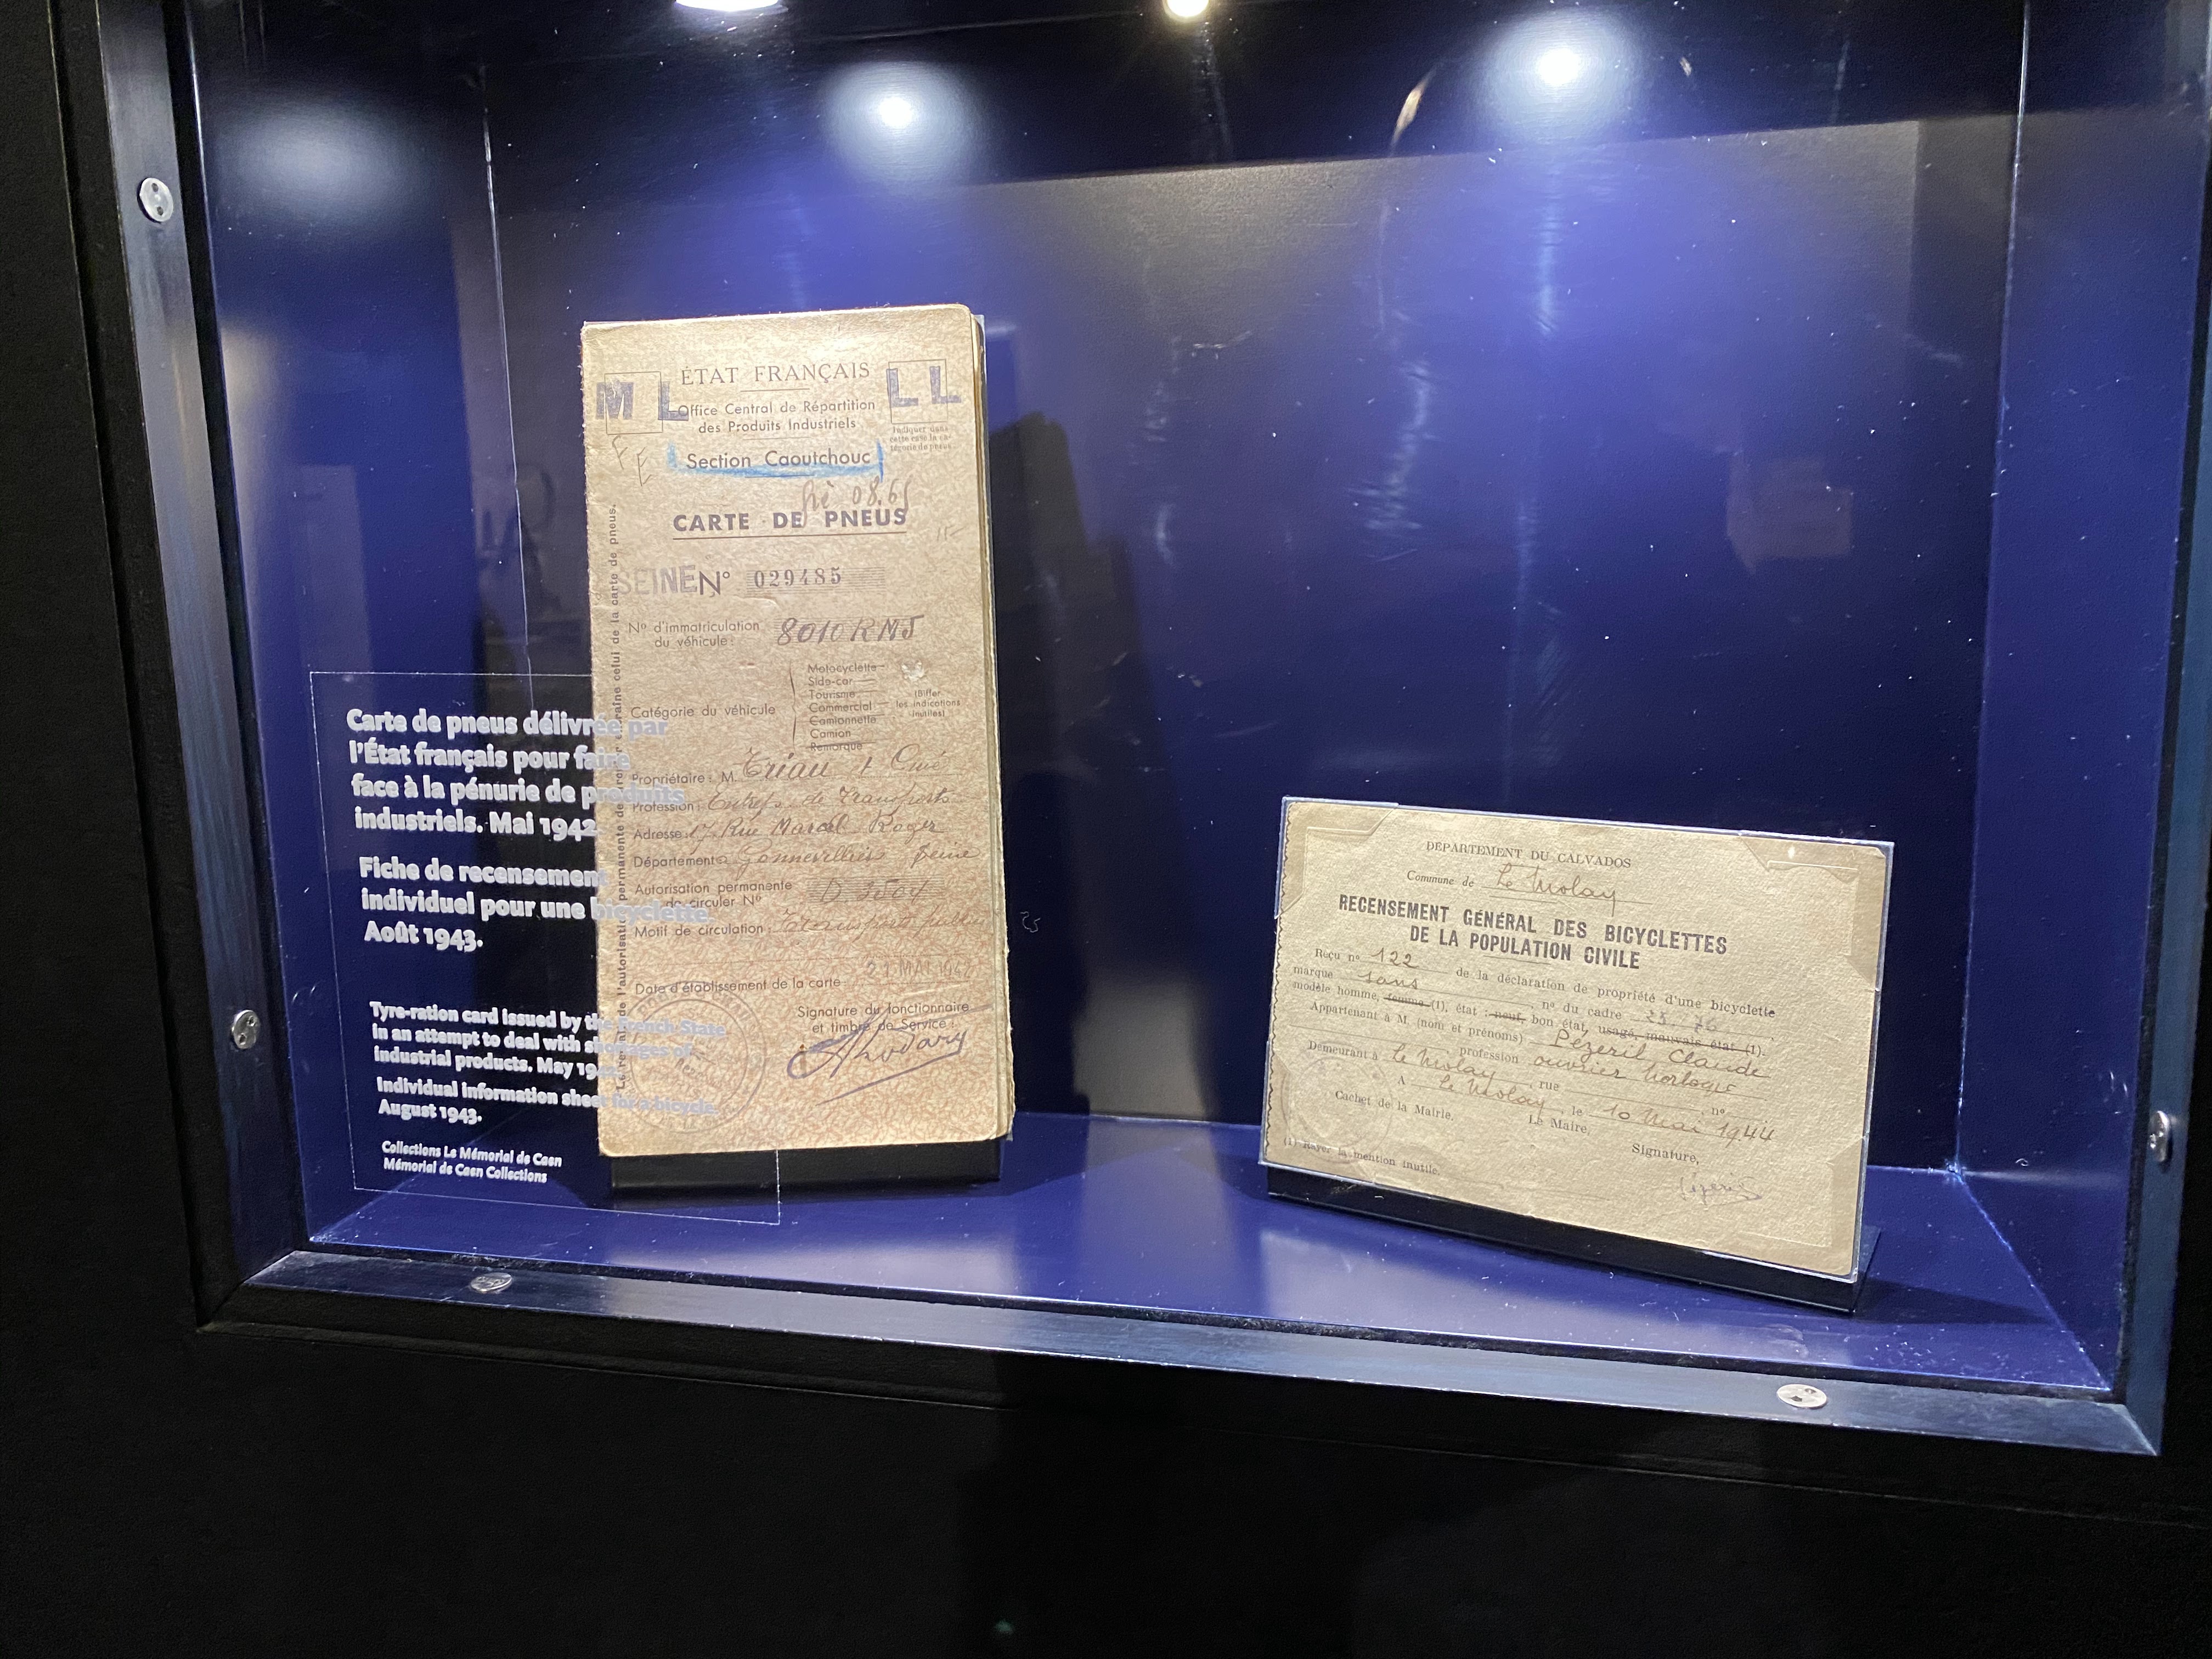 Carte de pneus délivrée par
l'État français pour faire
face à la pénurie de produits
industriels. Mai 1942.
Fiche de recensement
individuel pour une bicyclette.
Août 1943.
Tyre-ration card issued by the French State
in an attempt to deal with shortages of
industrial products. May 1942.
Individual information sheet for a bicycle.
August 1943.
Collections Le Mémorial de Caen
Mémorial de Caen Collections
ÉTAT FRANÇAIS
M L
L L
Office Central de Répartition
des Produits Industriels
Indiquer dans
cette case la ca-
tégorie de pneus
F E
Section Caoutchouc
08.65
CARTE DE PNEUS
15-
SEINE N° 029485
N° d'immatriculation
du véhicule : 8010 RMJ
Catégorie du véhicule
Motocyclette
Side-car
Tourisme
Commercial
Camionnette
Camion
Remarque
(Biffer
les indications
inutiles)
Propriétaire : M.
Profession : Entrep. de Transports
Adresse : 17 Rue Marcel Roger
Département : Gennevilliers Seine
Autorisation permanente
de circuler N°
Motif de circulation : Transport public
Date d'établissement de la carte 21 MAI 1942
Signature du fonctionnaire
et timbre de Service :
DÉPARTEMENT DU CALVADOS
Commune de Le Molay
RECENSEMENT GÉNÉRAL DES BICYCLETTES
DE LA POPULATION CIVILE
Reçu n° 122 de la déclaration de propriété d'une bicyclette
marque sans, n° du cadre 25.76
modèle homme, femme (1), état : neuf, bon état, usagé, mauvais état (1).
Appartenant à M. (nom et prénoms) Pézeril Claude
profession ouvrier horloger
Demeurant à Le Molay, rue, n°
A Le Molay, le 10 Mai 1944
Cachet de la Mairie. Le Maire, Signature,
(1) Rayer la mention inutile.